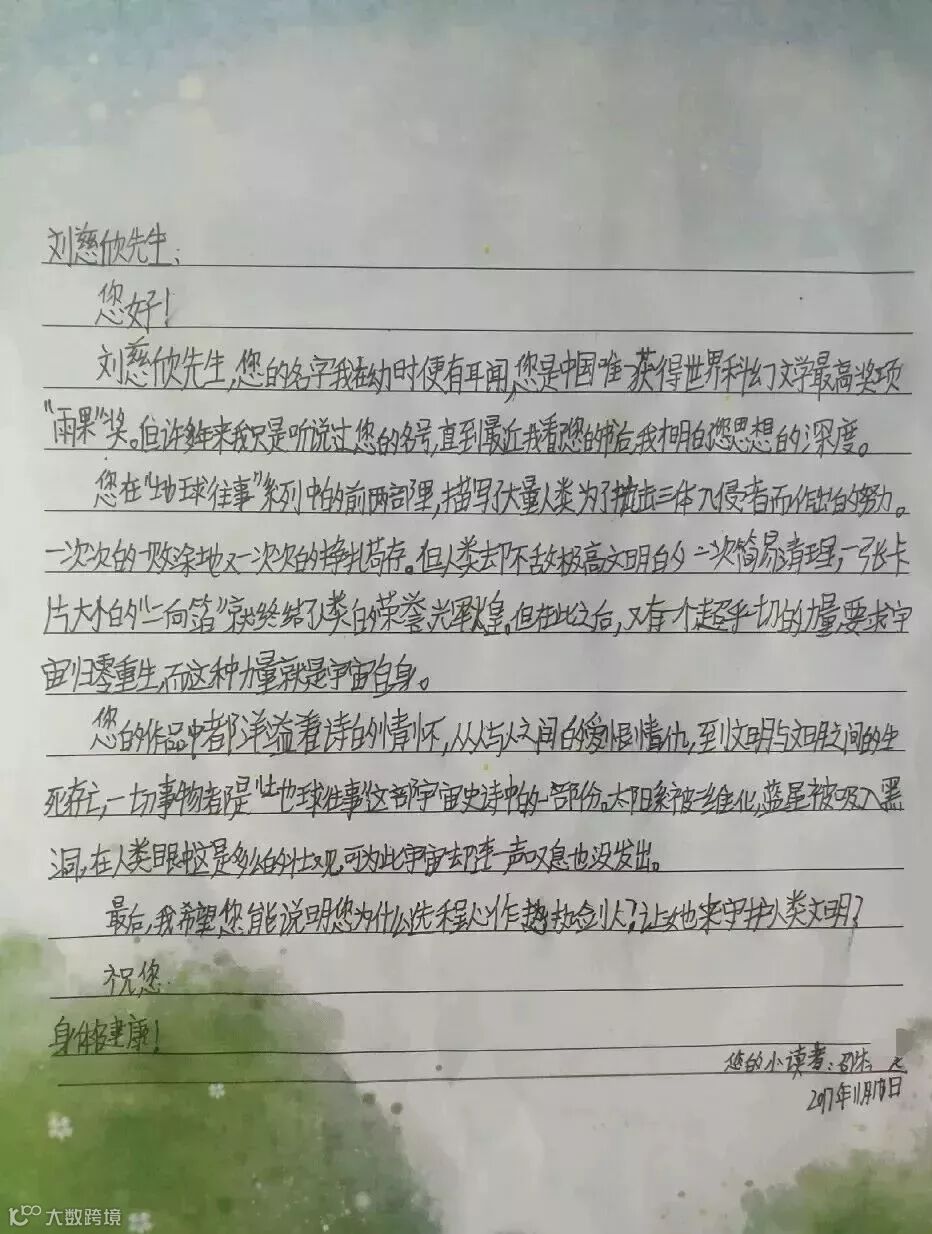 刘慈欣先生:
您好!
刘慈欣先生,您的名字我在幼时便有耳闻,您是中国唯一获得世界科幻文学最高奖项
"雨果"奖。但许多年来我只是听说过您的名号,直到最近我看您的书后,我才明白您思想的深度。
您在"地球往事"系列中的前两部里,描写了大量人类为了抗击三体入侵者而作出的努力。
一次次的一败涂地又一次次的挣扎苟存。但人类却不敌极高文明的一次简易清理,一张卡
片大小的"二向箔"就终结了人类的荣誉光辉煌。但在此之后,又有一个超乎一切的力量要求宇
宙归零重生,而这种力量就是宇宙自身。
您的作品中都洋溢着诗的情怀,从人与人之间的爱恨情仇,到文明与文明之间的生
死存亡,一切事物都是"地球往事"这部宇宙史诗中的一部份。太阳系被二维化,蓝星被吸入黑
洞,在人类眼中这是多么的壮观,可为此宇宙却连一声叹息也没发出。
最后,我希望您能说明您为什么选程心作执剑人?让她来守护人类文明?
祝您
身体健康!
您的小读者:
2017年11月 日
大数跨境